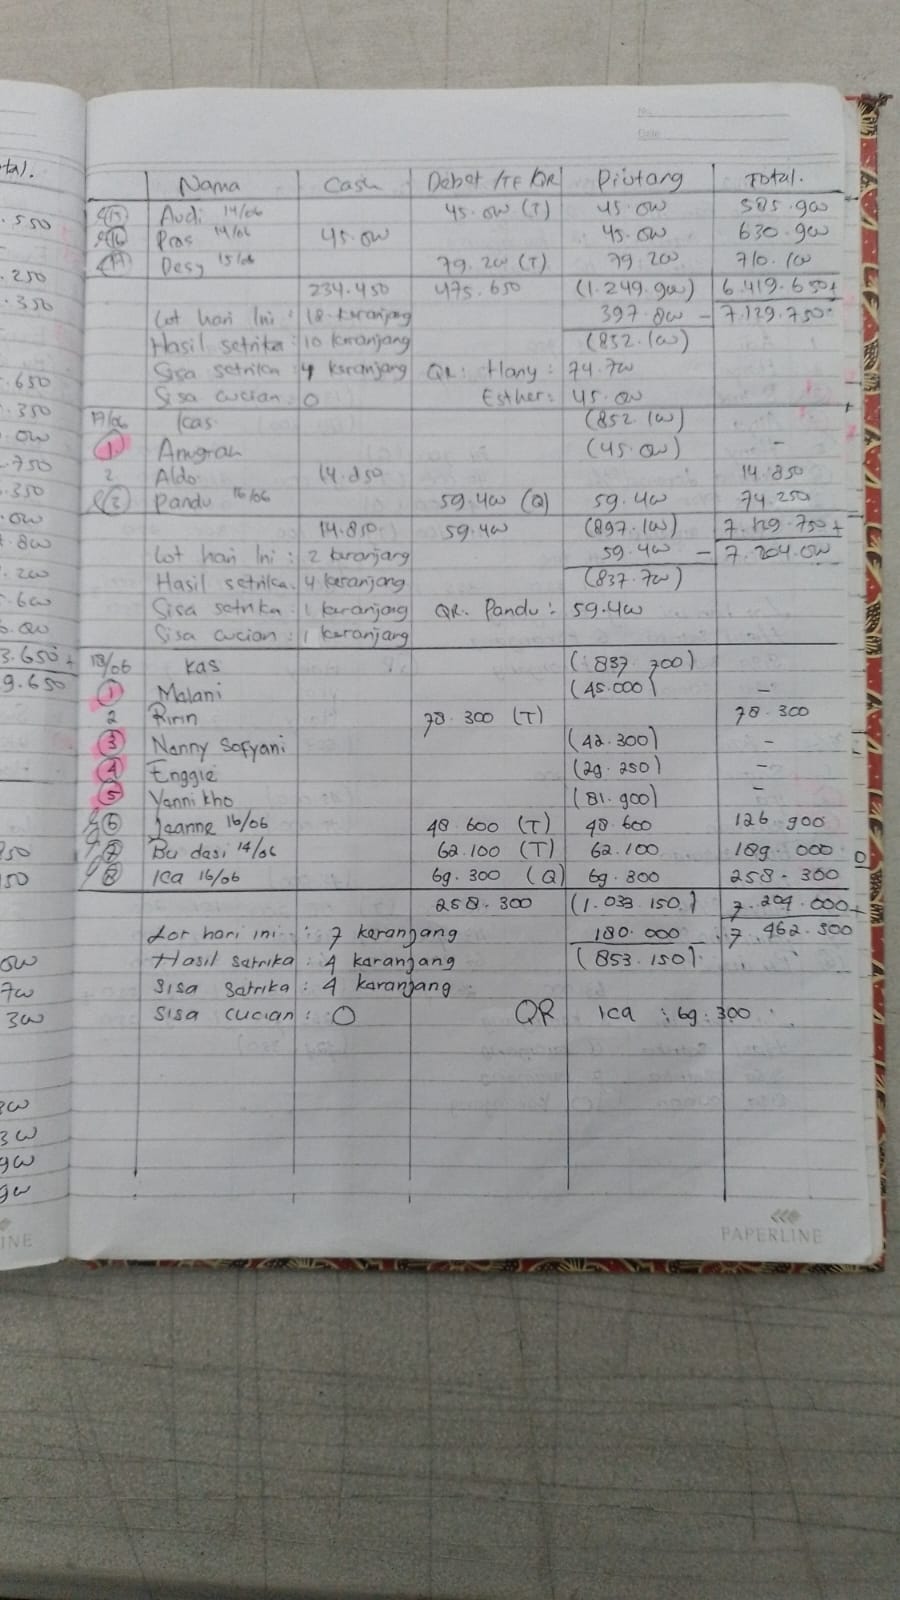 No.
Date
tal.
.550
.250
.350
.650
.350
.750
.350
3.650 +
9.650
Nama Cash Debet /TF /QR Piutang Total.
15 Audi 14/06 45.000 (T) 45.000 585.900
16 Pras 14/06 45.000 45.000 630.900
17 Desy 15/06 79.200 (T) 79.200 710.100
234.450 475.650 (1.249.900) 6.419.650 +
Lot hari Ini : 18 keranjang 397.800 - 7.129.750
Hasil setrika : 10 keranjang (852.100)
Sisa setrika : 4 keranjang QR : Hany : 74.700
Sisa cucian : 0 Esther : 45.000
17/06 Kas (852.100)
1. Anugrah (45.000) -
2 Aldo 14.850 14.850
3 Pandu 16/06 59.400 (Q) 59.400 74.250
14.850 59.400 (897.100) 7.129.750 +
Lot hari Ini : 2 keranjang 59.400 - 7.204.000
Hasil setrika : 4 keranjang (837.700)
Sisa setrika : 1 keranjang QR. Pandu : 59.400
Sisa cucian : 1 keranjang
18/06 Kas (837.700)
1 Malani (45.000) -
2 Ririn 78.300 (T) 78.300
3 Nanny Sofyani (42.300) -
4 Enggie (29.250) -
5 Yanni kho (81.900) -
6 Jeanne 16/06 48.600 (T) 48.600 126.900
7 Bu dasi 14/06 62.100 (T) 62.100 189.000
8 Ica 16/06 69.300 (Q) 69.300 258.300
258.300 (1.033.150) 7.204.000 +
Lot hari ini : 7 keranjang 180.000 - 7.462.300
Hasil Satrika : 4 karanjang (853.150)
Sisa Satrika : 4 karanjang
Sisa cucian : 0 QR Ica : 69.300
PAPERLINE